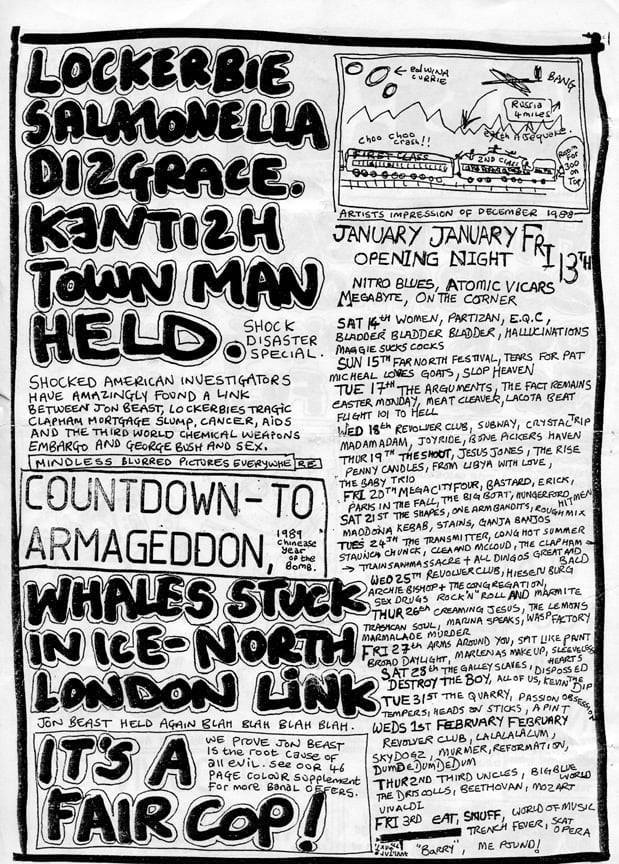 LOCKERBIE
SALMONELLA
DISGRACE.
KENTISH
TOWN MAN
HELD.
SHOCK
DISASTER
SPECIAL.
SHOCKED AMERICAN INVESTIGATORS
HAVE AMAZINGLY FOUND A LINK
BETWEEN JON BEAST, LOCKERBIES TRAGIC
CLAPHAM MORTGAGE SLUMP, CANCER, AIDS
AND THE THIRD WORLD CHEMICAL WEAPONS
EMBARGO AND GEORGE BUSH AND SEX.
MINDLESS BLURRED PICTURES EVERYWHE RE
COUNTDOWN-TO
ARMAGEDDON,
1989
chinease
year
of the
Bomb.
WHALES STUCK
IN ICE-NORTH
LONDON LINK
JON BEAST HELD AGAIN BLAH BLAH BLAH BLAH.
IT'S A
FAIR COP!
WE PROVE JON BEAST
is the root cause of
all evil. see our 46
PAGE COLOUR SUPPLEMENT
For more Banal OFFERS.
EDWINA
CURRIE
BANG
RUSSIA
4 MILES
choo choo
crash!!
FIRST CLASS
2ND CLASS
ROOM
FOR
300
ON
TOP
ARTISTS IMPRESSION OF DECEMBER 1988
JANUARY JANUARY FRI 13TH
OPENING NIGHT
NITRO BLUES, ATOMIC VICARS
MEGABYTE, ON THE CORNER
SAT 14th WOMEN, PARTIZAN, E.Q.C,
BLADDER BLADDER BLADDER, HALLUCINATIONS
MAGGIE SUCKS COCKS
SUN 15TH FAR NORTH FESTIVAL, TEARS FOR PAT
MICHEAL LOVES GOATS, SLOP HEAVEN
TUE 17TH THE ARGUMENTS, THE FACT REMAINS
EASTER MONDAY, MEAT CLEAVER, LACOTA BEAT
FLIGHT 101 TO HELL
WED 18th REVOLVER CLUB, SUBWAY, CRYSTAL TRIP
MADAM ADAM, JOYRIDE, BONE PICKERS HAVEN
THUR 19TH THE SHOUT, JESUS JONES, THE RISE
PENNY CANDLES, FROM LIBYA WITH LOVE,
THE BABY TRIO
FRI 20TH MEGA CITY FOUR, BASTARD, ERICK,
PARIS IN THE FALL, THE BIG BOAT, HUNGERFORD HIT MEN
SAT 21ST THE SHAPES, ONE ARM BANDITS, ROUGH MIX
MADDONA KEBAB, STAINS, GANJA BANJOS
TUES 24TH THE TRANSMITTER, LONG HOT SUMMER
STAUNCH CHUNCK, CLEA AND MCLOUD, THE CLAPHAM
TRAINSAN MASSACRE + ALL DINGOS GREAT AND BALD
WED 25TH REVOLVER CLUB, HIESEN BURG
ARCHIE BISHOP + THE CONGREGATION,
SEX DRUGS ROCK'N'ROLL AND MARMITE
THUR 26TH CREAMING JESUS, THE LEMONS
TRASHCAN SOUL, MARINA SPEAKS, WASP FACTORY
MARMALADE MURDER
FRI 27TH ARMS AROUND YOU, SAT LIKE PAINT
BROAD DAYLIGHT, MARLENAS MAKE UP, SLEEVELESS HEARTS
SAT 28TH THE GALLEY SLAVES, DISPOSSED
DESTROY THE BOY, ALL OF US, KEVIN THE DIP
TUE 31ST THE QUARRY, PASSION OBSESSION
TEMPERS, HEADS ON STICKS, A PINT
WEDS 1ST FEBRUARY FEBRUARY
REVOLVER CLUB, LALALALALUM,
SKY DOGZ, MURMER, REFORMATION,
DUMDEDUMDEDUM
THUR 2ND THIRD UNCLES, BIG BLUE WORLD
THE DRISCOLLS, BEETHOVAN, MOZART
VIVALDI
FRI 3RD EAT, SNUFF, WORLD OF MUSIC
TRENCH FEVER, SCAT OPERA
"BARRY", ME POUND!